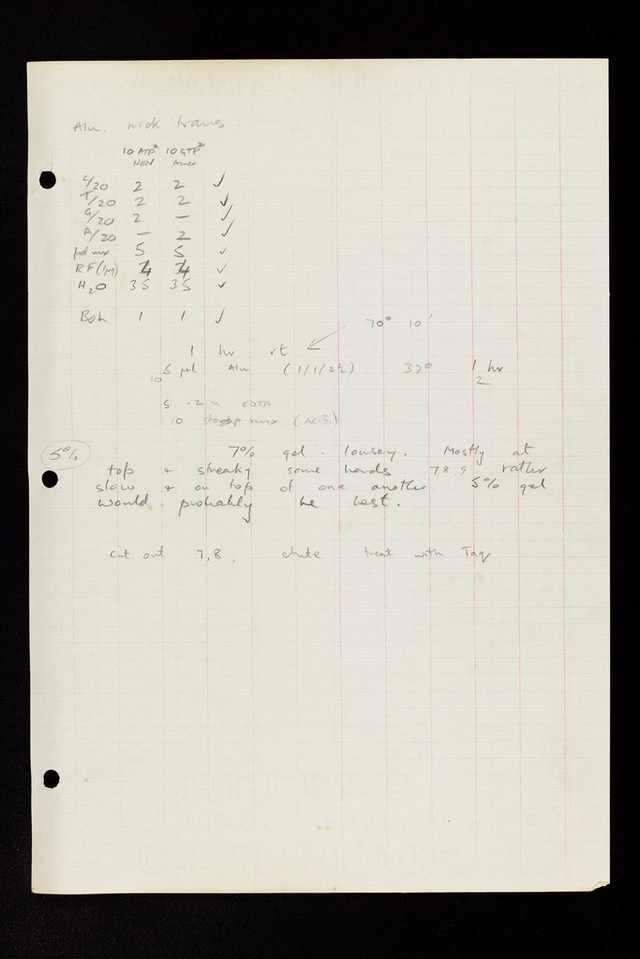 Alu. nick trans.
10 ATP* 10 GTP*
NEN Amer
C/20 2 2 ✓
T/20 2 2 ✓
G/20 2 — ✓
A/20 — 2 ✓
pol mx 5 5 ✓
RF 4 4 ✓
H2O 35 35 ✓
Both 1 1 ✓
70° 10'
1 hr rt
5 µl Alu (1/1/22) 37° 1 hr
10 2
5 .2 M EDTA
10 mix
5% 7% gel. lousey. Mostly at
top + streaky some bands 7 8, 9 rather
slow + on top of one another 5% gel
would probably be best.
cut out 7, 8, elute treat with Taq